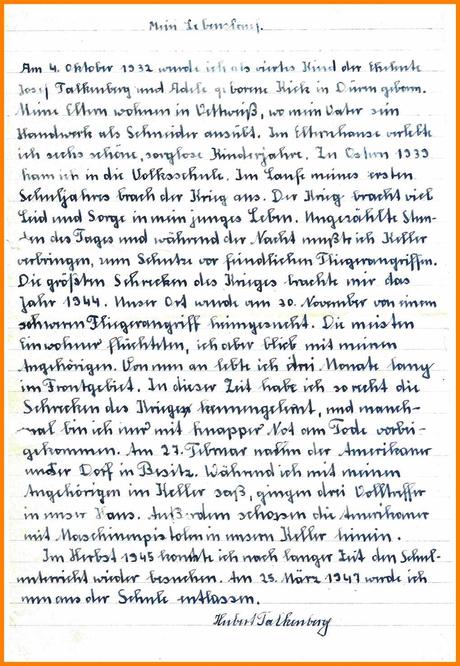 Mein Lebenslauf.
Am 4. Oktober 1932 wurde ich als viertes Kind der Eheleute
Josef Falkenberg und Adele geborene Kick in Düren geboren.
Meine Eltern wohnen in Vettweiß, wo mein Vater sein
Handwerk als Schneider ausübt. Im Elternhause verlebte
ich sechs schöne, sorglose Kinderjahre. Zu Ostern 1939
kam ich in die Volksschule. Im Laufe meines ersten
Schuljahres brach der Krieg aus. Der Krieg bracht viel
Leid und Sorge in mein junges Leben. Ungezählte Stun-
den des Tages und während der Nacht mußte ich Keller
verbringen, zum Schutze vor feindlichen Fliegerangriffen.
Die größten Schrecken des Krieges brachte mir das
Jahr 1944. Unser Ort wurde am 30. November von einem
schweren Fliegerangriff heimgesucht. Die meisten
Einwohner flüchteten, ich aber blieb mit meinen
Angehörigen. Von nun an lebte ich drei Monate lang
im Frontgebiet. In dieser Zeit habe ich so recht die
Schrecken des Krieges kennengelernt, und manch-
mal bin ich nur mit knapper Not am Tode vorbei-
gekommen. Am 27. Februar nahm der Amerikaner
unser Dorf in Besitz. Während ich mit meinen
Angehörigen im Keller saß, gingen drei Volltreffer
in unser Haus. Außerdem schossen die Amerikaner
mit Maschinenpistolen in unsern Keller hinein.
Im Herbst 1945 konnte ich nach langer Zeit den Schul-
unterricht wieder besuchen. Am 25. März 1947 wurde ich
nun aus der Schule entlassen.
Hubert Falkenberg